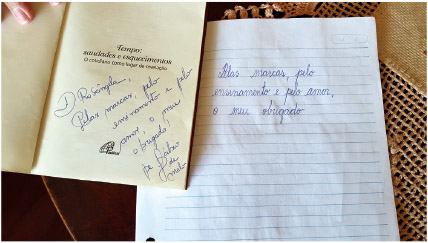 Tempo:
saudades e esquecimentos
O cotidiano como lugar de revelação
D. Rosangela,
Pelas marcas, pelo
ensinamento e pelo
amor, o meu
obrigado!
Pe. Fábio
de
Melo
Pelas marcas, pelo
ensinamento e pelo amor,
o meu obrigado